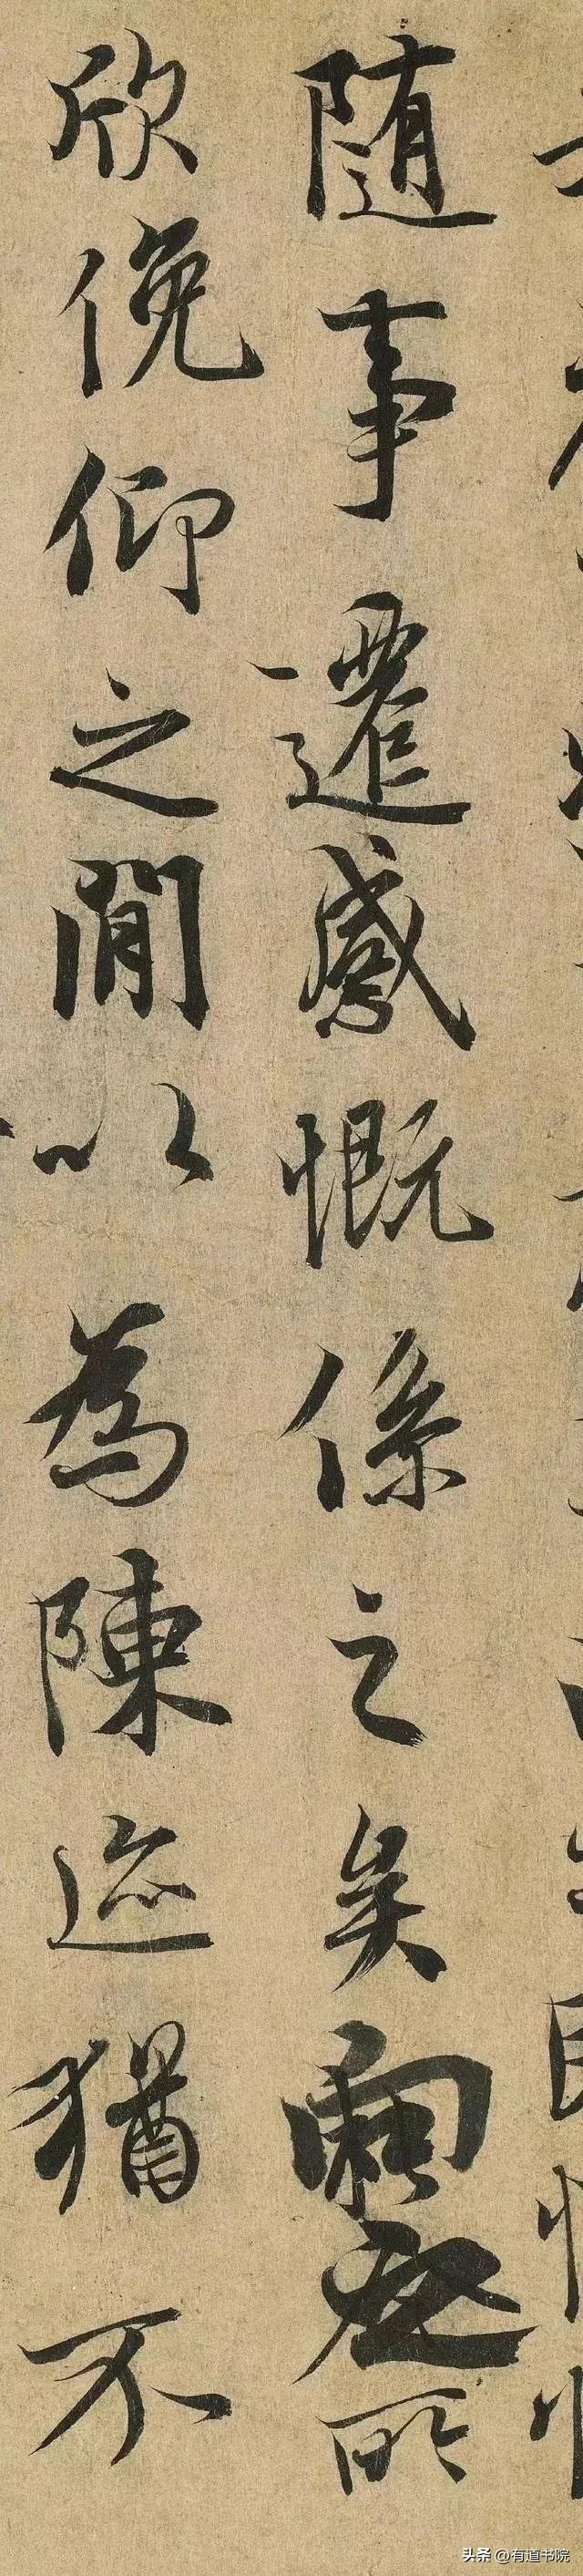 随事遷感慨係之矣向之所
欣俛仰之閒以為陳迹猶不
头条 @有道书院